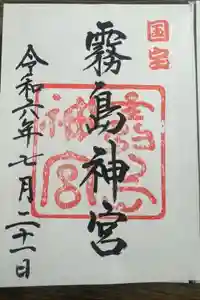 国宝
霧島神宮
令和六年七月二十一日
霧島神宮